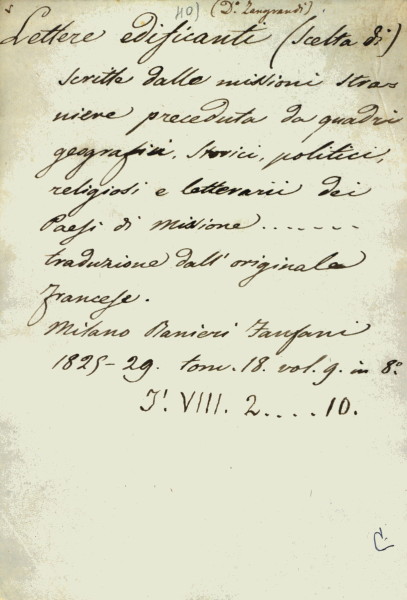 40) (D.º Zangrandi).
Lettere edificanti (Scelta di)
scritte dalle missioni stra-
niere preceduta da quadri
geografici, storici, politici,
religiosi e letterarii dei
Paesi di missione.......
traduzione dall'originale
francese.
Milano Ranieri Fanfani
1825-29. tom. 18. vol. 9. in 8.º
J'. VIII. 2....10.